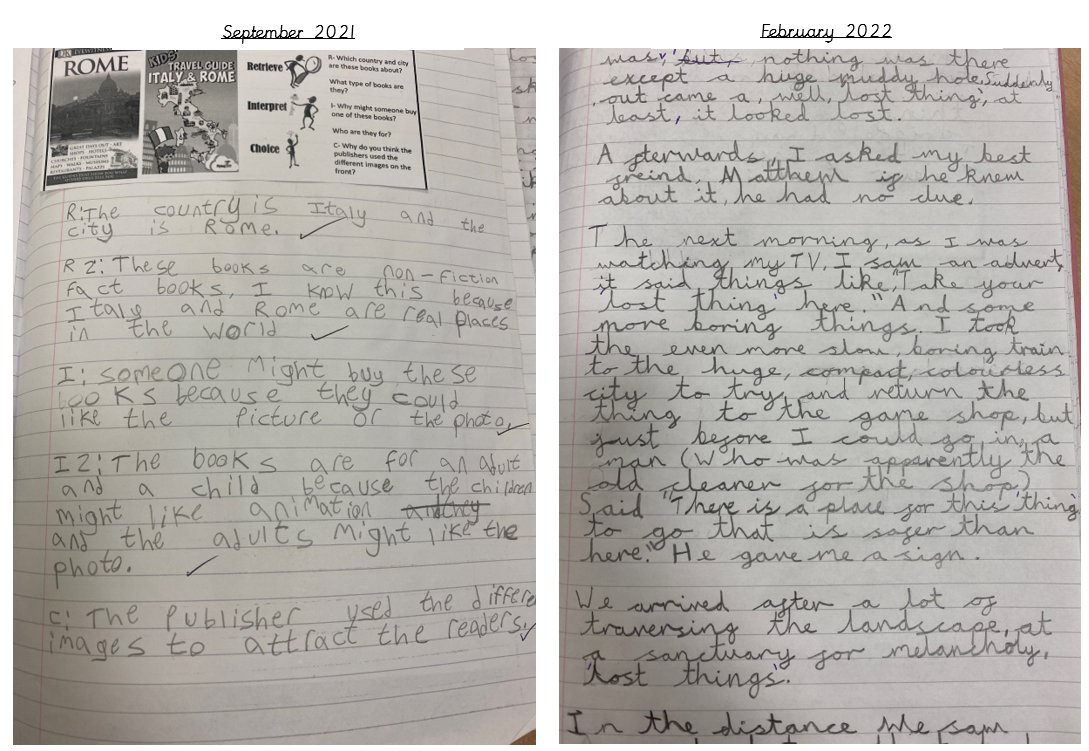 September 2021
February 2022
EYEWITNESS
ROME
KIDS'
TRAVEL GUIDE
ITALY & ROME
GREAT DAYS OUT · ART
SHOPS · HOTELS
CHURCHES · FOUNTAINS
MAPS · WALKS · MUSEUMS
RESTAURANTS · PALAZZI
Retrieve
R- Which country and city
are these books about?
What type of books are
they?
Interpret
I- Why might someone buy
one of these books?
Who are they for?
Choice
C- Why do you think the
publishers used the
different images on the
front?
R: The country is Italy and the
city is Rome.
R 2: These books are non-fiction
fact books, I know this because
Italy and Rome are real places
in the world
I: someone might buy these
books because they could
like the picture or the photo.
I 2: The books are for an adult
and a child because the children
might like animation and they
and the adults might like the
photo.
C: The publisher used the differe
images to attract the readers.
was, but, nothing was there
except a huge muddy hole. Suddenly
out came a, well, lost thing, at
least, it looked lost.
Afterwards, I asked my best
freind, Matthew if he knew
about it, he had no clue.
The next morning, as I was
watching my TV, I saw an advert,
it said things like, "Take your
'lost thing' here." And some
more boring things. I took
the even more slow, boring train
to the huge, compact, colourless
city to try and return the
thing to the game shop, but
just before I could go in, a
man (Who was apparently the
old cleaner for the shop)
Said "There is a place for this 'thing'
to go that is safer than
here." He gave me a sign.
We arrived after a lot of
traversing the landscape, at
a sanctuary for melancholy,
'lost things'.
In the distance We saw